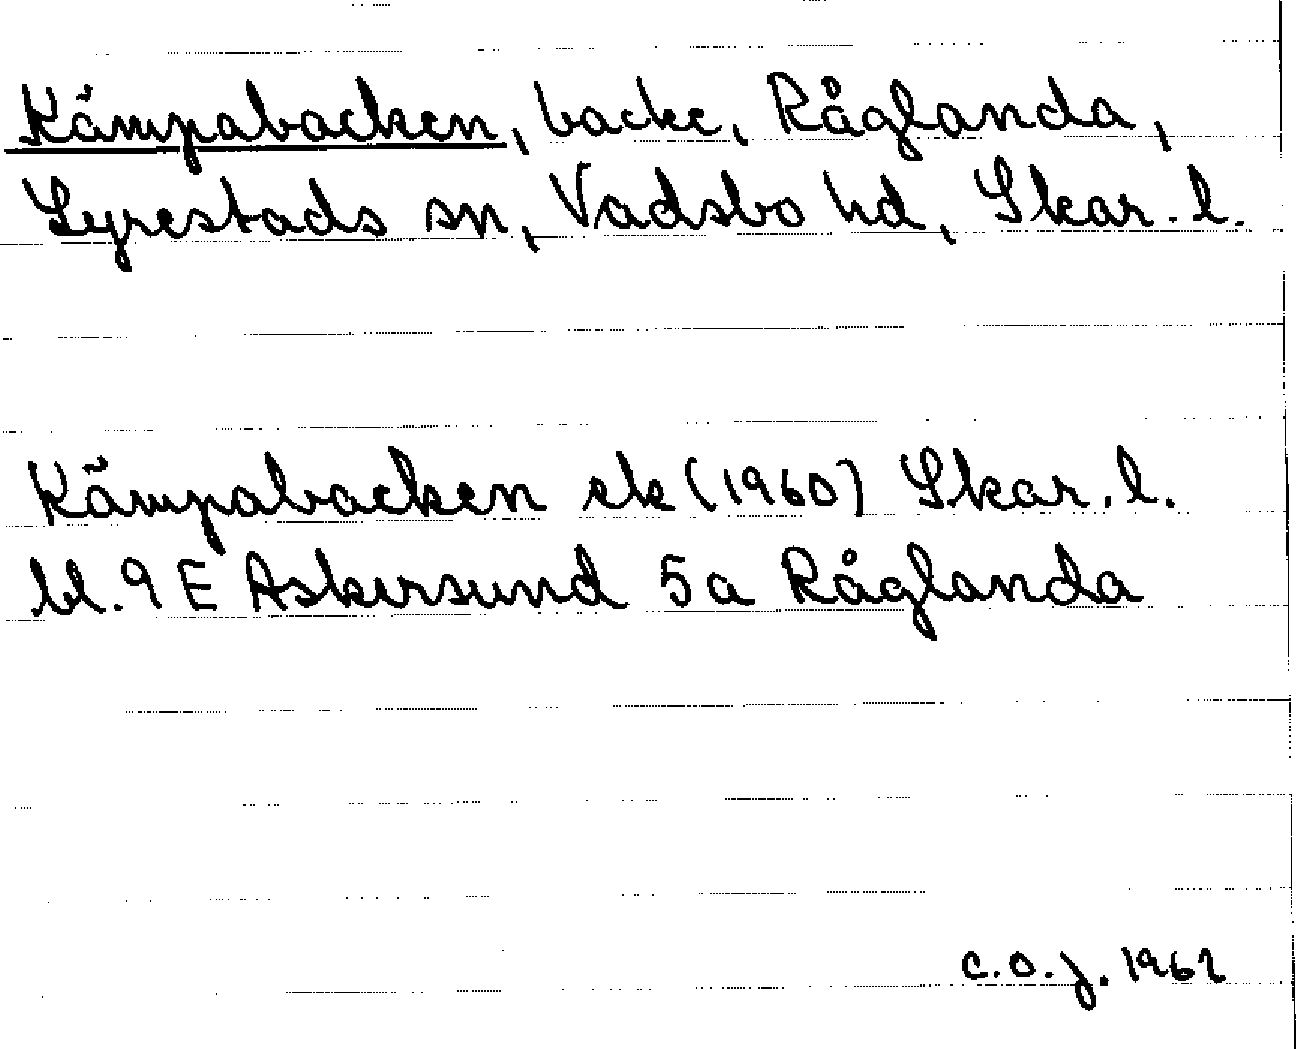 Kämpabacken, backe, Råglanda,
Lyrestads sn, Vadsbo hd, Skar. l.
Kämpabacken ek (1960) Skar. l.
bl. 9 E Askersund 5 a Råglanda
C.O.J. 1962